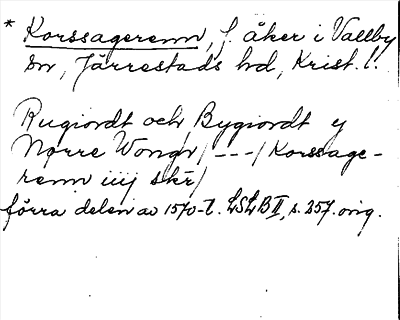 * Korssagerenn, f. åker i Vallby
sn, Järrestads hd, Krist. l.
Rugiordt och Bygiordt y
Nørre Wongn/---/Korssage-
renn iiij skr/
förra delen av 1570-t. LSLB II, s. 257. orig.